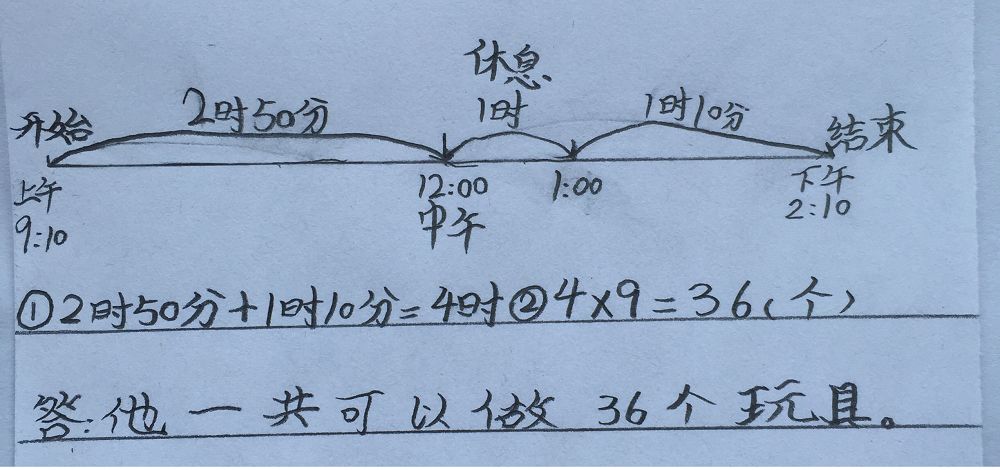 休息
开始 2时50分 1时 1时10分 结束
上午 12:00 1:00 下午
9:10 中午 2:10
①2时50分+1时10分=4时②4×9=36(个)
答:他一共可以做36个玩具。